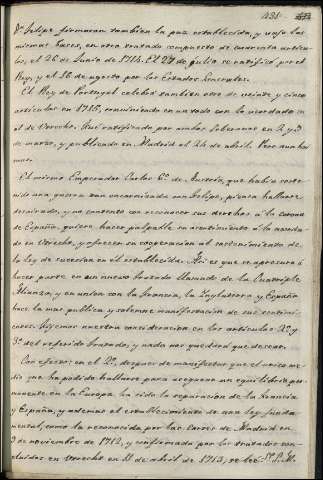 431.
Dn Felipe firmaron tambien la paz establecida, y bajo las
mismas bases, en otro tratado compuesto de cuarenta articu-
los, el 26 de Junio de 1714. El 27 de julio se ratificó por el
Rey, y el 16 de agosto por los Estados Generales.
El Rey de Portugal celebró tambien otro de veinte y cinco
articulos en 1715, conviniendo en un todo con lo acordado en
el de Utrecho. Fué ratificado por ambos Soberanos en 2 y 9
de marzo, y publicado en Madrid el 24 de abril. Pero aun hay
mas.
El mismo Emperador Carlos 6º de Austria, que habia soste-
nido una guerra tan encarnizada con Felipe, piensa hallarse
desairado, y no contento con reconocer sus derechos á la corona
de España, quiere hacer palpable su asentimiento á lo acorda-
do en Utrecho, y ofrecen su cooperacion al sostenimiento de la
ley de sucesion en él establecida. Asi es que se apresura á
hacer parte en un nuevo tratado llamado de la Cuadruple
Alianza, y en union con la Francia, la Inglaterra y España
hace la mas publica y solemne manifestacion de sus sentimi-
entos. Fijemos nuestra consideracion en los articulos 2º y
3º del referido tratado, y nada nos quedará que desear.
Con efecto, en el 2º, despues de manifestar que el unico me-
dio que ha podido hallarse para asegurar un equilibrio per-
manente en la Europa, ha sido la separacion de la Francia
y España, y ademas el establecimiento de una ley funda-
mental, como la reconocida por las Cortes de Madrid en
9 de noviembre de 1712, y confirmada por los tratados con-
cluidos en Utrecht en 11 de abril de 1713, se lee